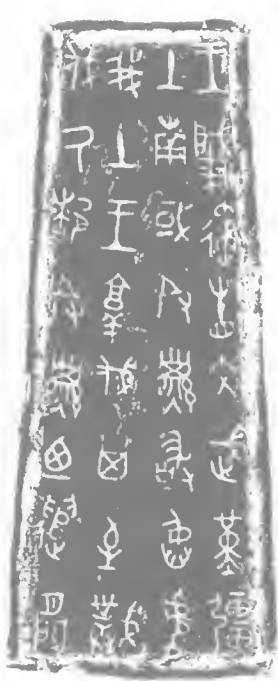 王肇遹眚文武堇彊
土南或𠬝孳敢臽虐
我土王𦎫伐其至𢿢
伐氒都𠬝孳廼遣閒